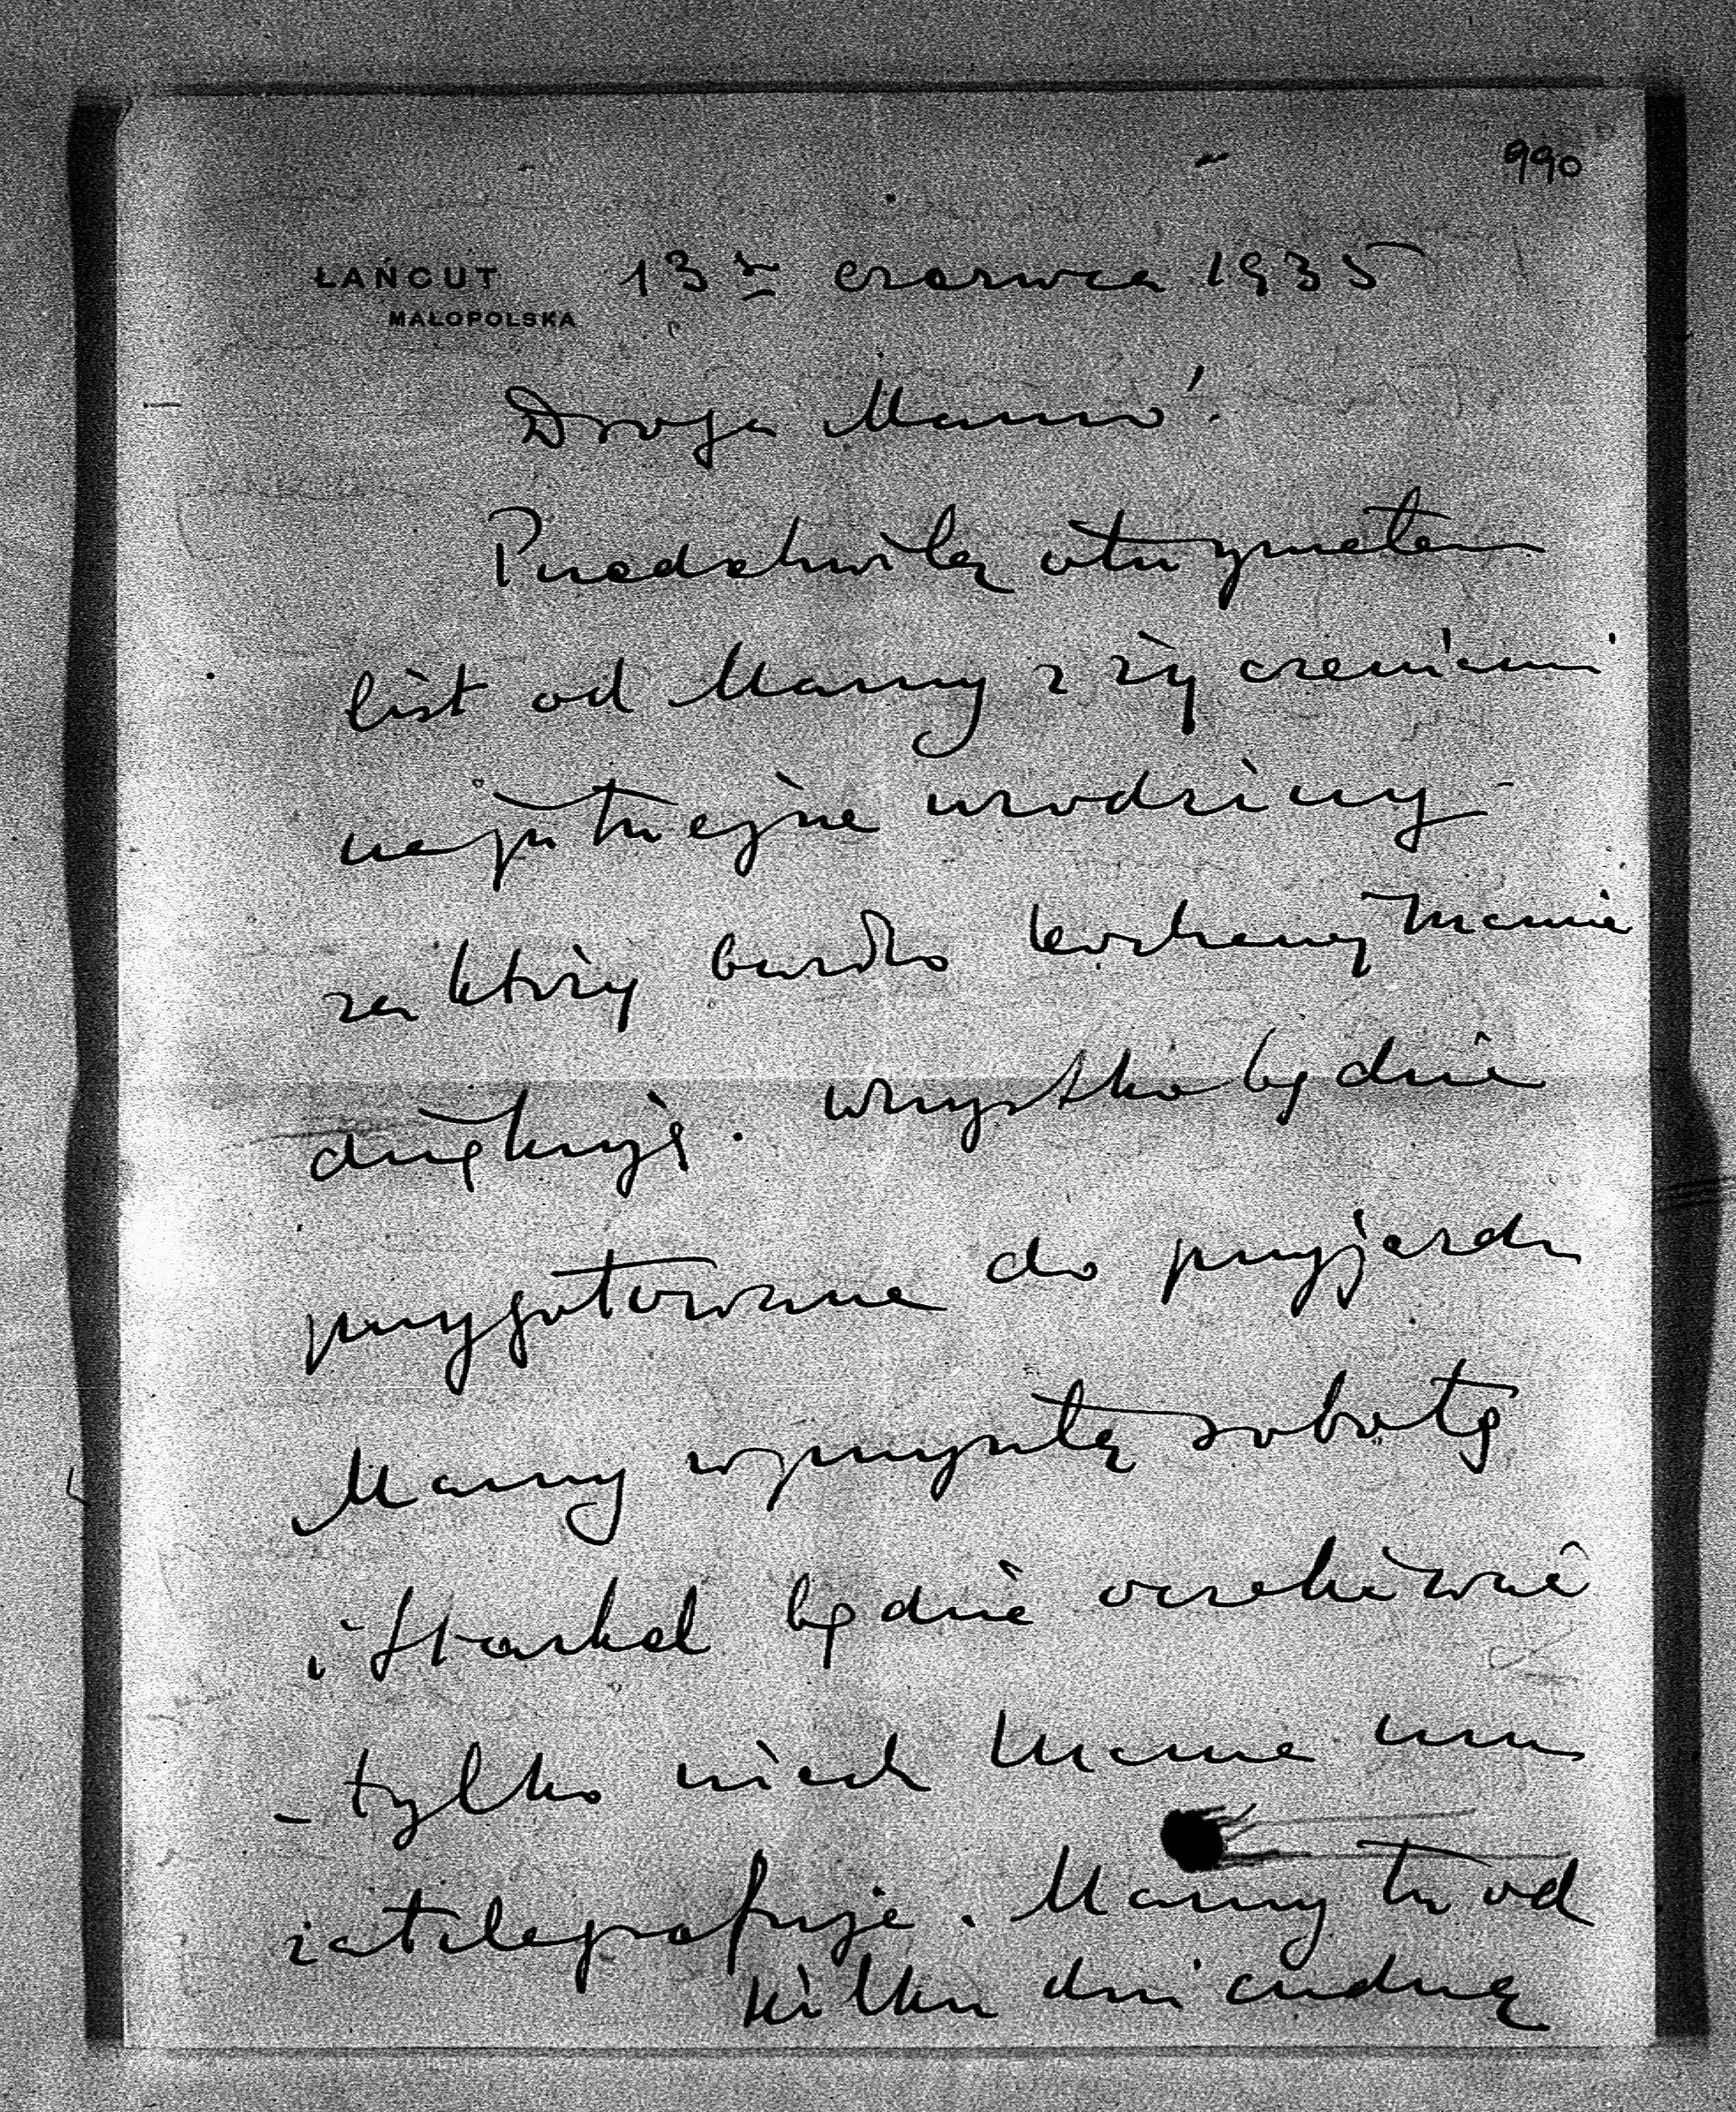 990
ŁAŃCUT 13 czerwca 1935
MAŁOPOLSKA
Droga Mamo!
Przedchwilą otrzymałem
list od Mamy z życzeniami
na jutrzejsze urodziny
za który bardzo kochanej Mamie
dziękuję. Wszystko będzie
przygotowane do przyjazdu
Mamy w przyszłą sobotę
i będzie oczekiwać
- tylko niech Mama mu
zatelegrafuje. Mamy tu od
kilku dni cudną